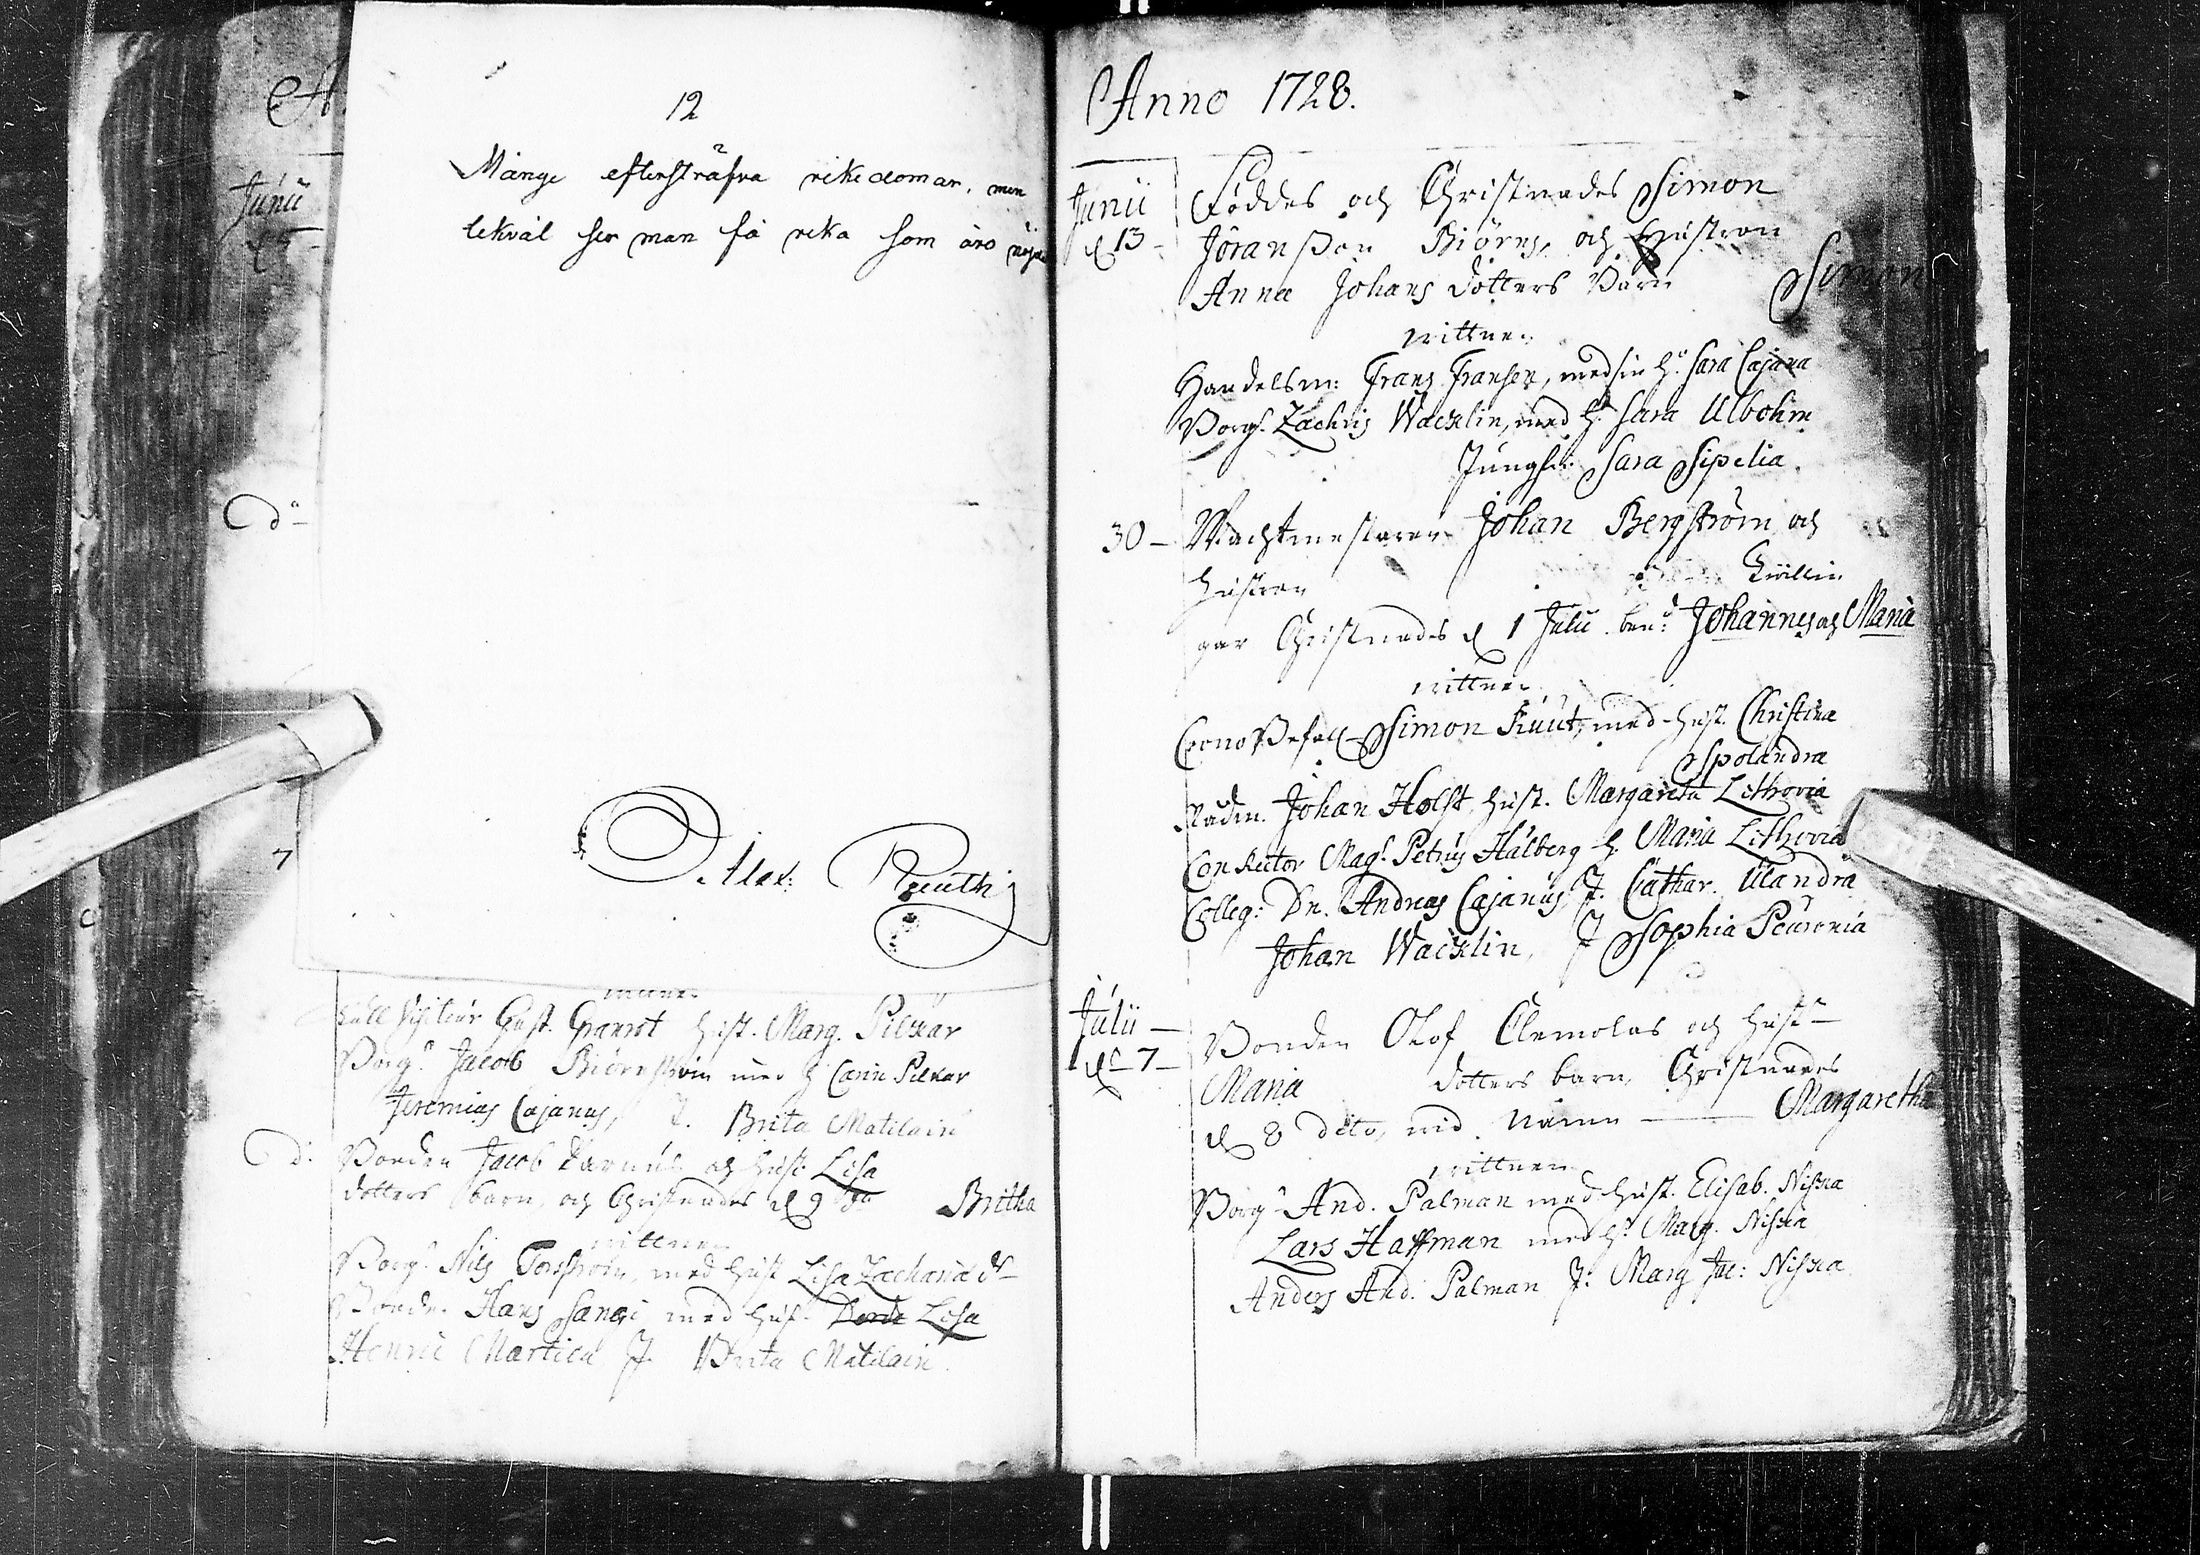 A
12
Mange eftersträfva rikedomar, men
likväl ser man få rika som äro nöjda
Junii
d 5
do
7
Alex:
vittnen
Gust. Granrot Hust. Marg. Pilkar
Borg. Jacob Biörnström med H Carin Pilkar
Jeremias Cajanus, J. Brita Matilain
d:
Bonden Jacob och Hust. Lisa
dotters barn, och Christnades d 9 Britha
vittnen
Borg. Nils Torström, med Hust Lisa Zachariæ dr
Bonden Hans Sangi med Hus. Lisa
Henric Martici J. Brita Matilain.
Anno 1728.
Junii
d 13
Föddes och Christnades Simon
Jöransson Biörns, och Hustron
Anna Johans dotters Barn Simon
vittnen
Handelsm: Frans Fransen, med sin H. Sara Cajana
Borg. Zachris Wacklin, med H. Sara Ulbohm
Jungfr. Sara Sipelia.
30 – Wachtmestaren Johan Bergström och
Hustron Twillin
gar Christnades d 1 Julii ben:d Johannes och Maria
vittnen
Crono Befall Simon Kuut, med Hust. Christina
Spolandra
Rådm. Johan Holst, Hust. Margareta Lithovia
Con Rector Mag. Petrus Hälberg H. Maria Lithovia
Colleg: Dn. Andreas Cajanus, J. Cathar. Ulandra
Johan Wacklin, J Sophia Peuronia
Julii –
d 7 –
Bonden Olof Clemolas och Hust
Maria dotters barn, Christnades
d 8 dito, vid namn — Margaretha
vittnen
Borg And. Palman med Hust. Elisab. Niska
Lars Haffman med H. Marg. Niska
Anders And. Palman J: Marg Jac: Niska